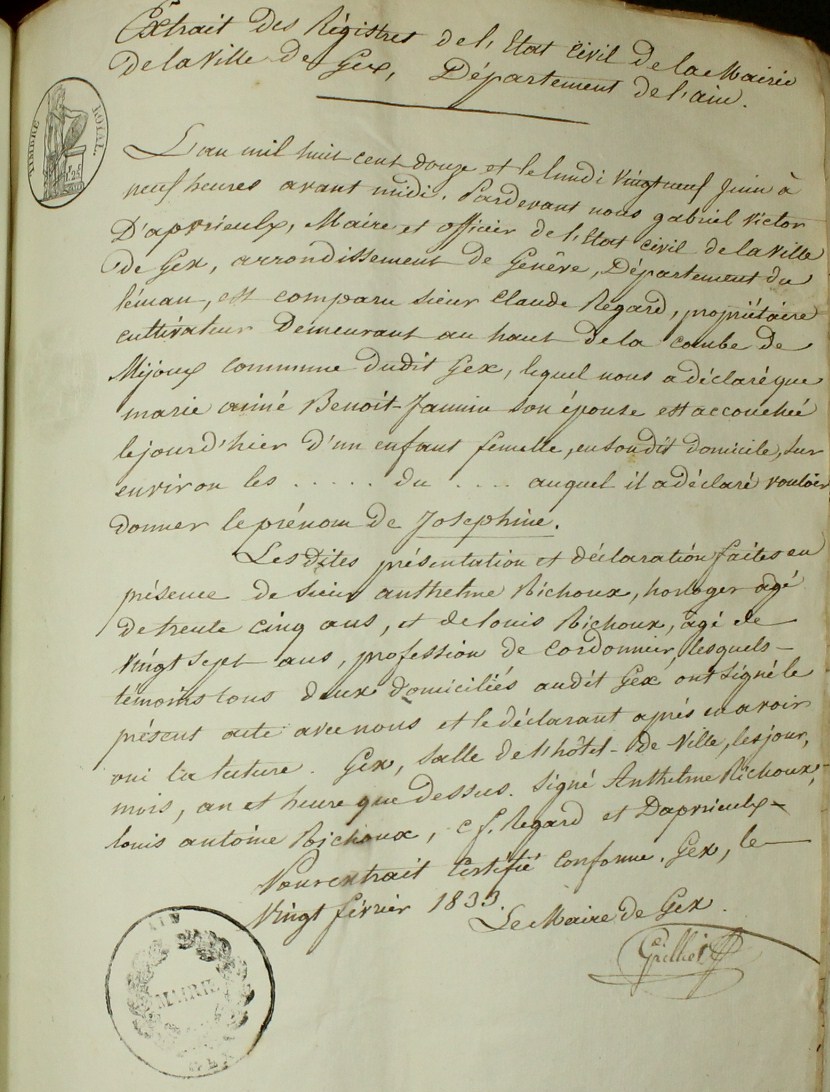 Extrait des Régistres de l'Etat civil de la Mairie
de la Ville de Gex, Département de l'ain.
TIMBRE ROYAL
L'an mil huit cent douze et le lundi vingtneuf Juin à
neuf heures avant midi. Pardevant nous gabriel victor
D'aprieulx, Maire et officier de l'Etat civil de la ville
de Gex, arrondissement de Genêve, Département du
léman, est comparu sieur Claude Regard, propriétaire
cultivateur demeurant au haut de la combe de
Mijoux commune dudit Gex, lequel nous a déclaré que
marie aimé Benoit-Jannin son épouse est accouchée
le jour d'hier d'un enfant femelle, en son dit domicile, sur
environ les ..... du .... auquel il a déclaré vouloir
donner le prénom de Josephine.
Les dites présentation et déclaration faites en
présence de sieur anthelme Richoux, horloger agé
de trente cinq ans, et de louis Richoux, agé de
vingt sept ans, profession de cordonnier, lesquels
témoins tous deux domiciliés audit Gex ont signé le
présent acte avec nous et le déclarant aprés en avoir
oui la lecture. Gex, salle de l'hôtel-de Ville, les jour,
mois, an et heure que dessus. signé Anthelme Richoux,
louis antoine Richoux, c f. Regard et Daprieulx
Pour extrait Certifié conforme. Gex, le
vingt février 1833
Le Maire de Gex.
AIN
MAIRIE
GEX